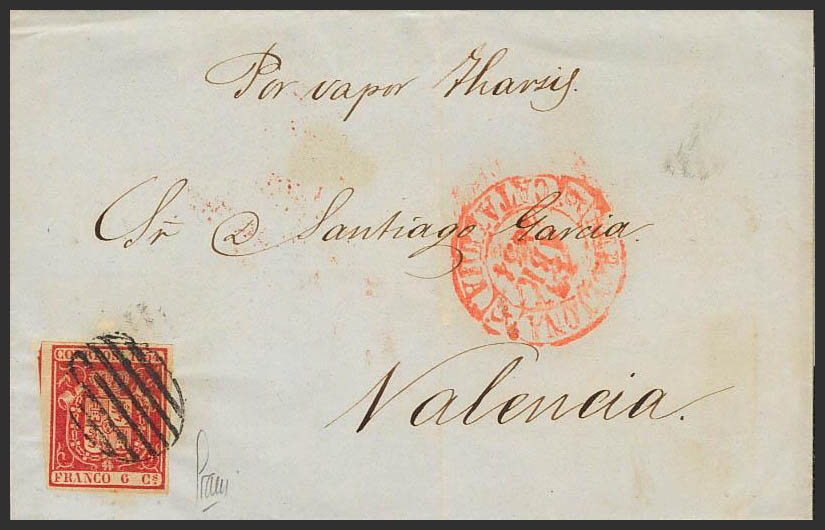 Por vapor Tharsis.
Sr D Santiago Garcia.
CATALUÑA
Valencia.
CORREOS 1854
FRANCO 6 Cs